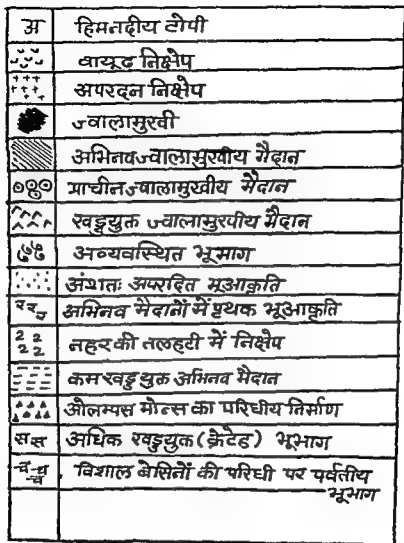 अ हिमनदीय टोपी
वायूढ निक्षेप
अपरदन निक्षेप
ज्वालामुखी
अभिनव ज्वालामुखीय मैदान
प्राचीन ज्वालामुखीय मैदान
खड्डयुक्त ज्वालामुखीय मैदान
अव्यवस्थित भूभाग
अंशतः अपरदित भूआकृति
अभिनव मैदानों में पृथक भूआकृति
2 2 2 2 नहर की तलहटी में निक्षेप
कम खड्डयुक्त अभिनव मैदान
ओलम्पस मोन्स का परिधीय निर्माण
स स अधिक खड्डयुक्त (क्रेटेड) भूभाग
च च च विशाल बेसिनों की परिधी पर पर्वतीय
भूभाग